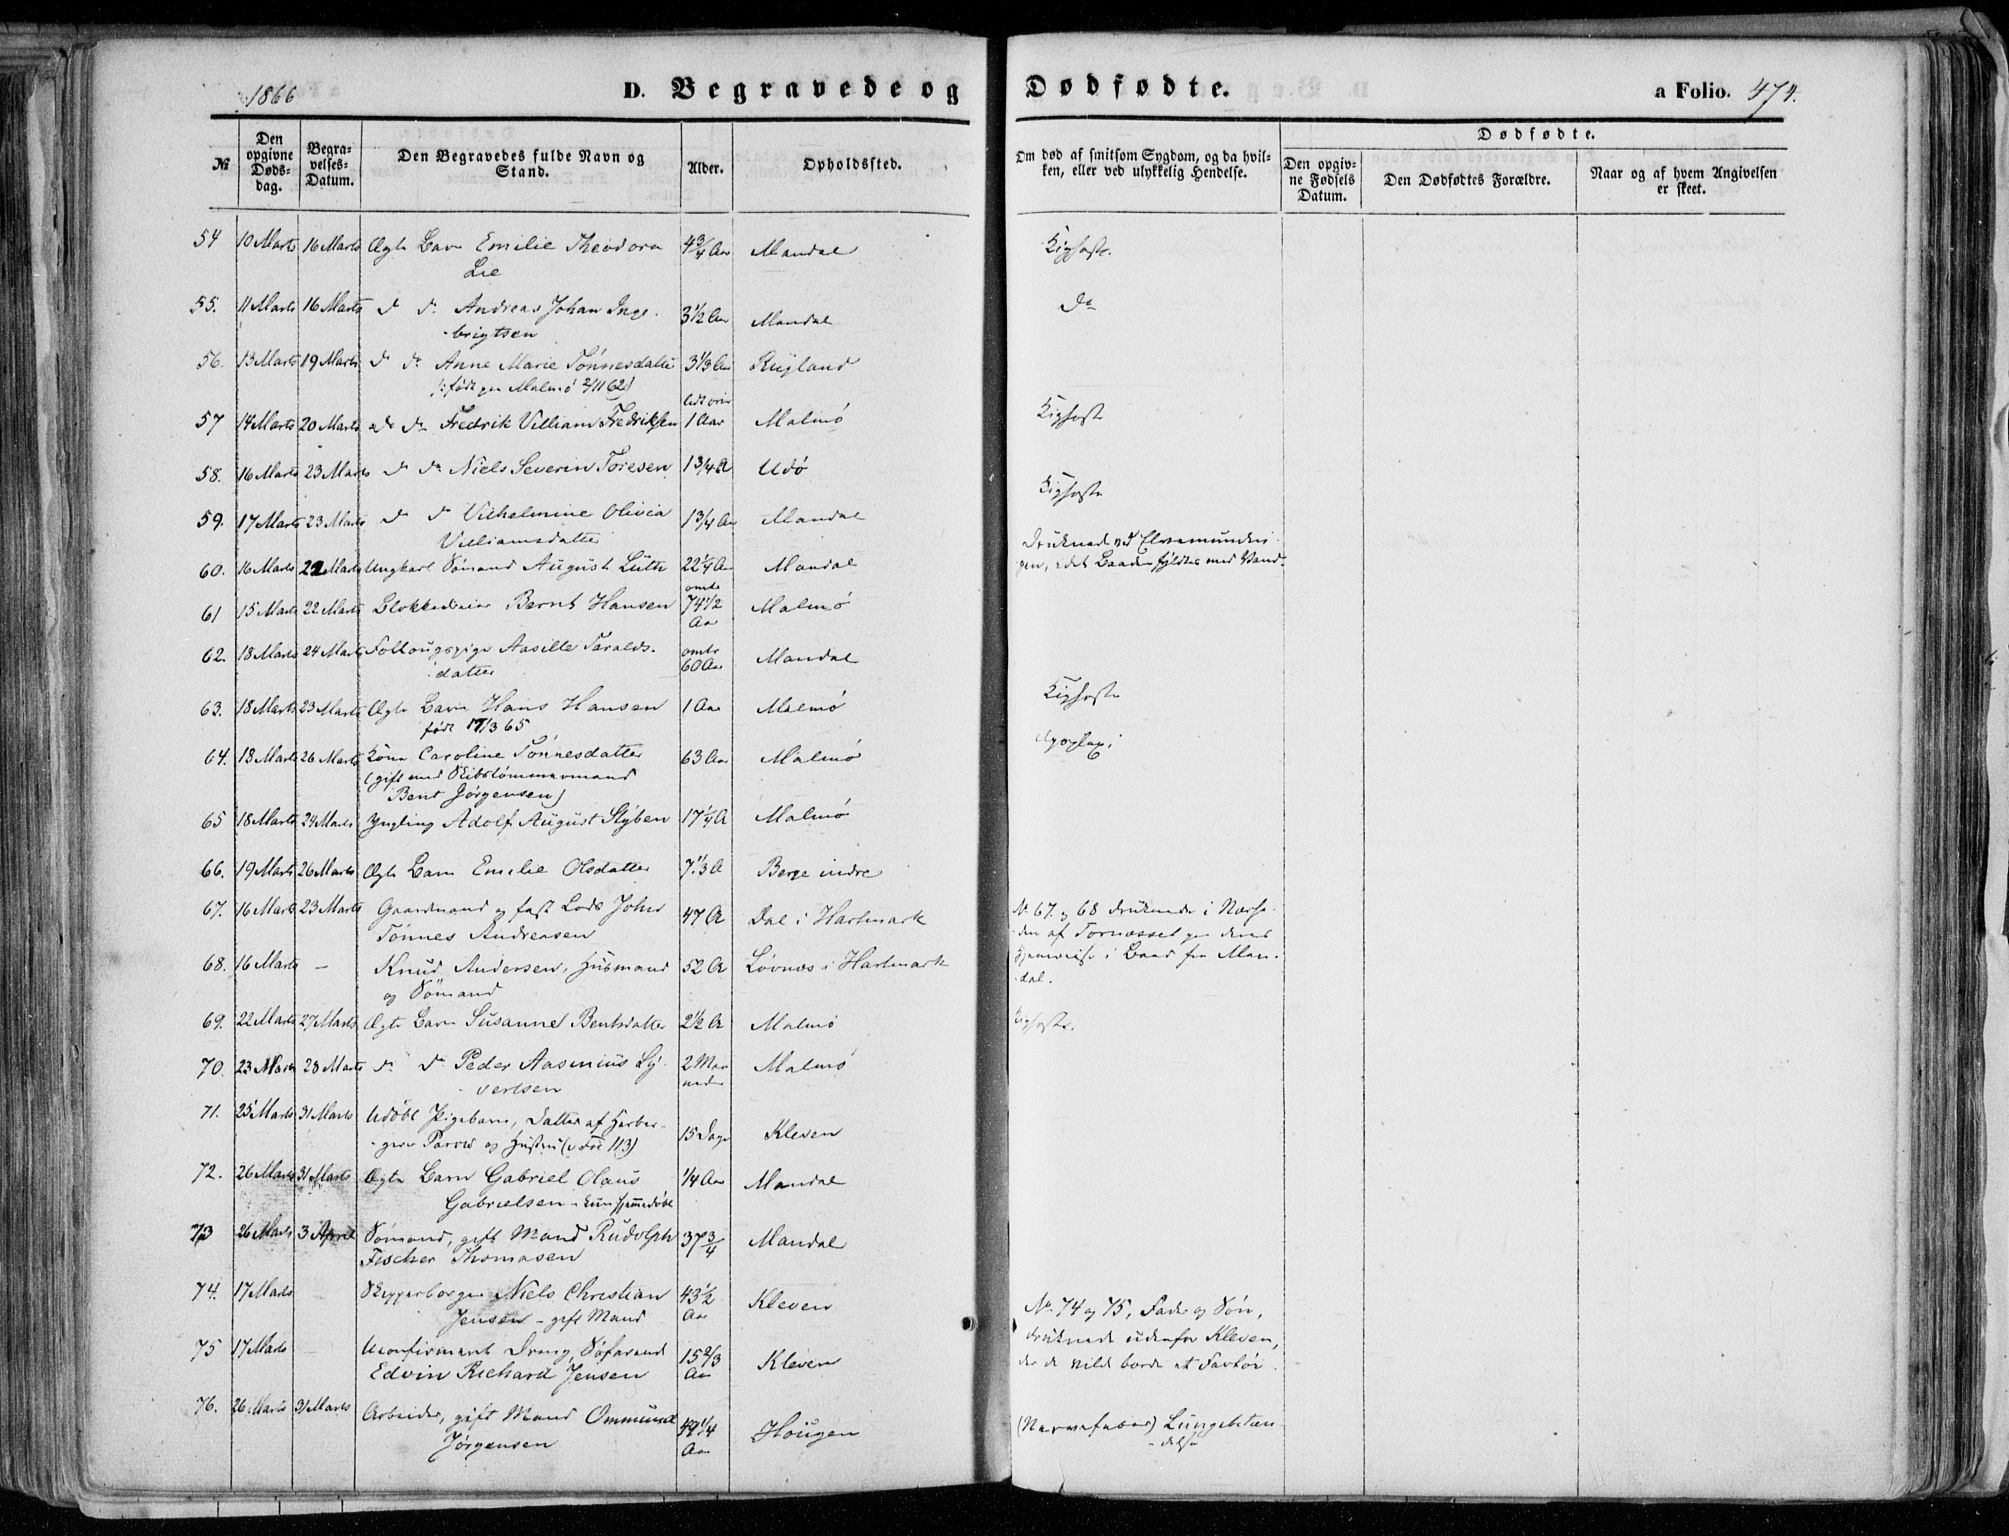 1866
D. Begravede og Dødfødte. a Folio. 474.
№
Den opgivne Døds-dag.
Begra-velses-Datum.
Den Begravedes fulde Navn og Stand.
Alder.
Opholdssted.
Om død af smitsom Sygdom, og da hvil-ken, eller ved ulykkelig Hendelse.
Dødfødte.
Den opgiv-ne Fødsels Datum.
Den Dødfødtes Forældre.
Naar og af hvem Angivelsen er skeet.
54 10 Marts 16 Marts Ægte Barn Emilie Theodora 4 3/4 Aar Mandal Kighoste.
Lie
55. 11 Marts 16 Marts do do Andreas Johan Inge- 3 1/2 Aar Mandal do
brigtsen
56. 13 Marts 19 Marts do do Anne Marie Tønnesdatter 3 1/3 Aar
(: født paa Malmø 2/11 62)
57 14 Marts 20 Marts do do Fredrik Villiam Fredriksen 1 Aar Malmø Kighoste
58. 16 Marts 23 Marts do do Niels Severin Toresen 1 3/4 A Udø
Kighoste
59. 17 Marts 23 Marts do do Vilhelmine Olivia 1 3/4 Aar Mandal
Villiamsdatter
60. 16 Marts 22 Marts Ungkarl Sømand August Lüth 22 1/4 Aar Mandal
Druknede ved
idet Baaden fyldtes med Vand.
61 15 Marts 22 Marts Blokkedreier Bernt Hansen omtr 74 1/2 Aar Malmø
62. 18 Marts 24 Marts Aasille Taralds- omtr 60 Aar Mandal
datter
63. 18 Marts 23 Marts Ægte Barn Hans Hansen 1 Aar Malmø Kighoste
født 17/3 65
64. 18 Marts 26 Marts Kone Caroline Tønnesdatter 63 Aar Malmø Apoplexi
(gift med Skibstømmermand
Bent Jørgensen)
65 18 Marts 24 Marts Yngling Adolf August Styben 17 1/4 A Malmø
66. 19 Marts 26 Marts Ægte Barn Emilie Olsdatter 7 1/3 A Berge indre
67. 16 Marts 23 Marts Gaardmand og fast Lods John 47 A Dal i Hartmark
Tønnes Andreassen
No 67 og 68 druknede i Nærhe-
den af Tornæsset paa deres
Hjemreise i Baad fra Man-
dal.
68. 16 Marts — Knud Andersen, Husmand 52 A Løvnæs i Hartmark
og Sømand
69. 22 Marts 27 Marts Ægte Barn Susanne Bentsdatter 2 1/2 A Malmø Kighoste.
70. 23 Marts 28 Marts do do Peder Aasmius Sy- 2 Maaneder Malmø
vertsen
71. 25 Marts 31 Marts Udøbt Pigebarn, Datter af Herber- 15 Dage Kleven
gerer og Hustru
72. 26 Marts 31 Marts Ægte Barn Gabriel Olaus 1/4 Aar Mandal
Gabrielsen - kun hjemmedøbt
73 26 Marts 3 April Sømand, gift Mand Rudolph 37 3/4 Mandal
Fischer Thomasen
74. 17 Marts Skipperborger Niels Christian 43 1/2 Aar Kleven
Jensen - gift Mand
No 74 og 75, Fader og Søn,
druknede udenfor Kleven,
da de vilde borde et Fartøi.
75 17 Marts Uconfirmeret Dreng, Søfarende 15 2/3 Aar Kleven
Edvin Richard Jensen
76. 26 Marts 31 Marts Arbeider, gift Mand Ommund 49 1/4 Aar Hougen
Jørgensen
(Nervefeber) Lungebetæn-
delse